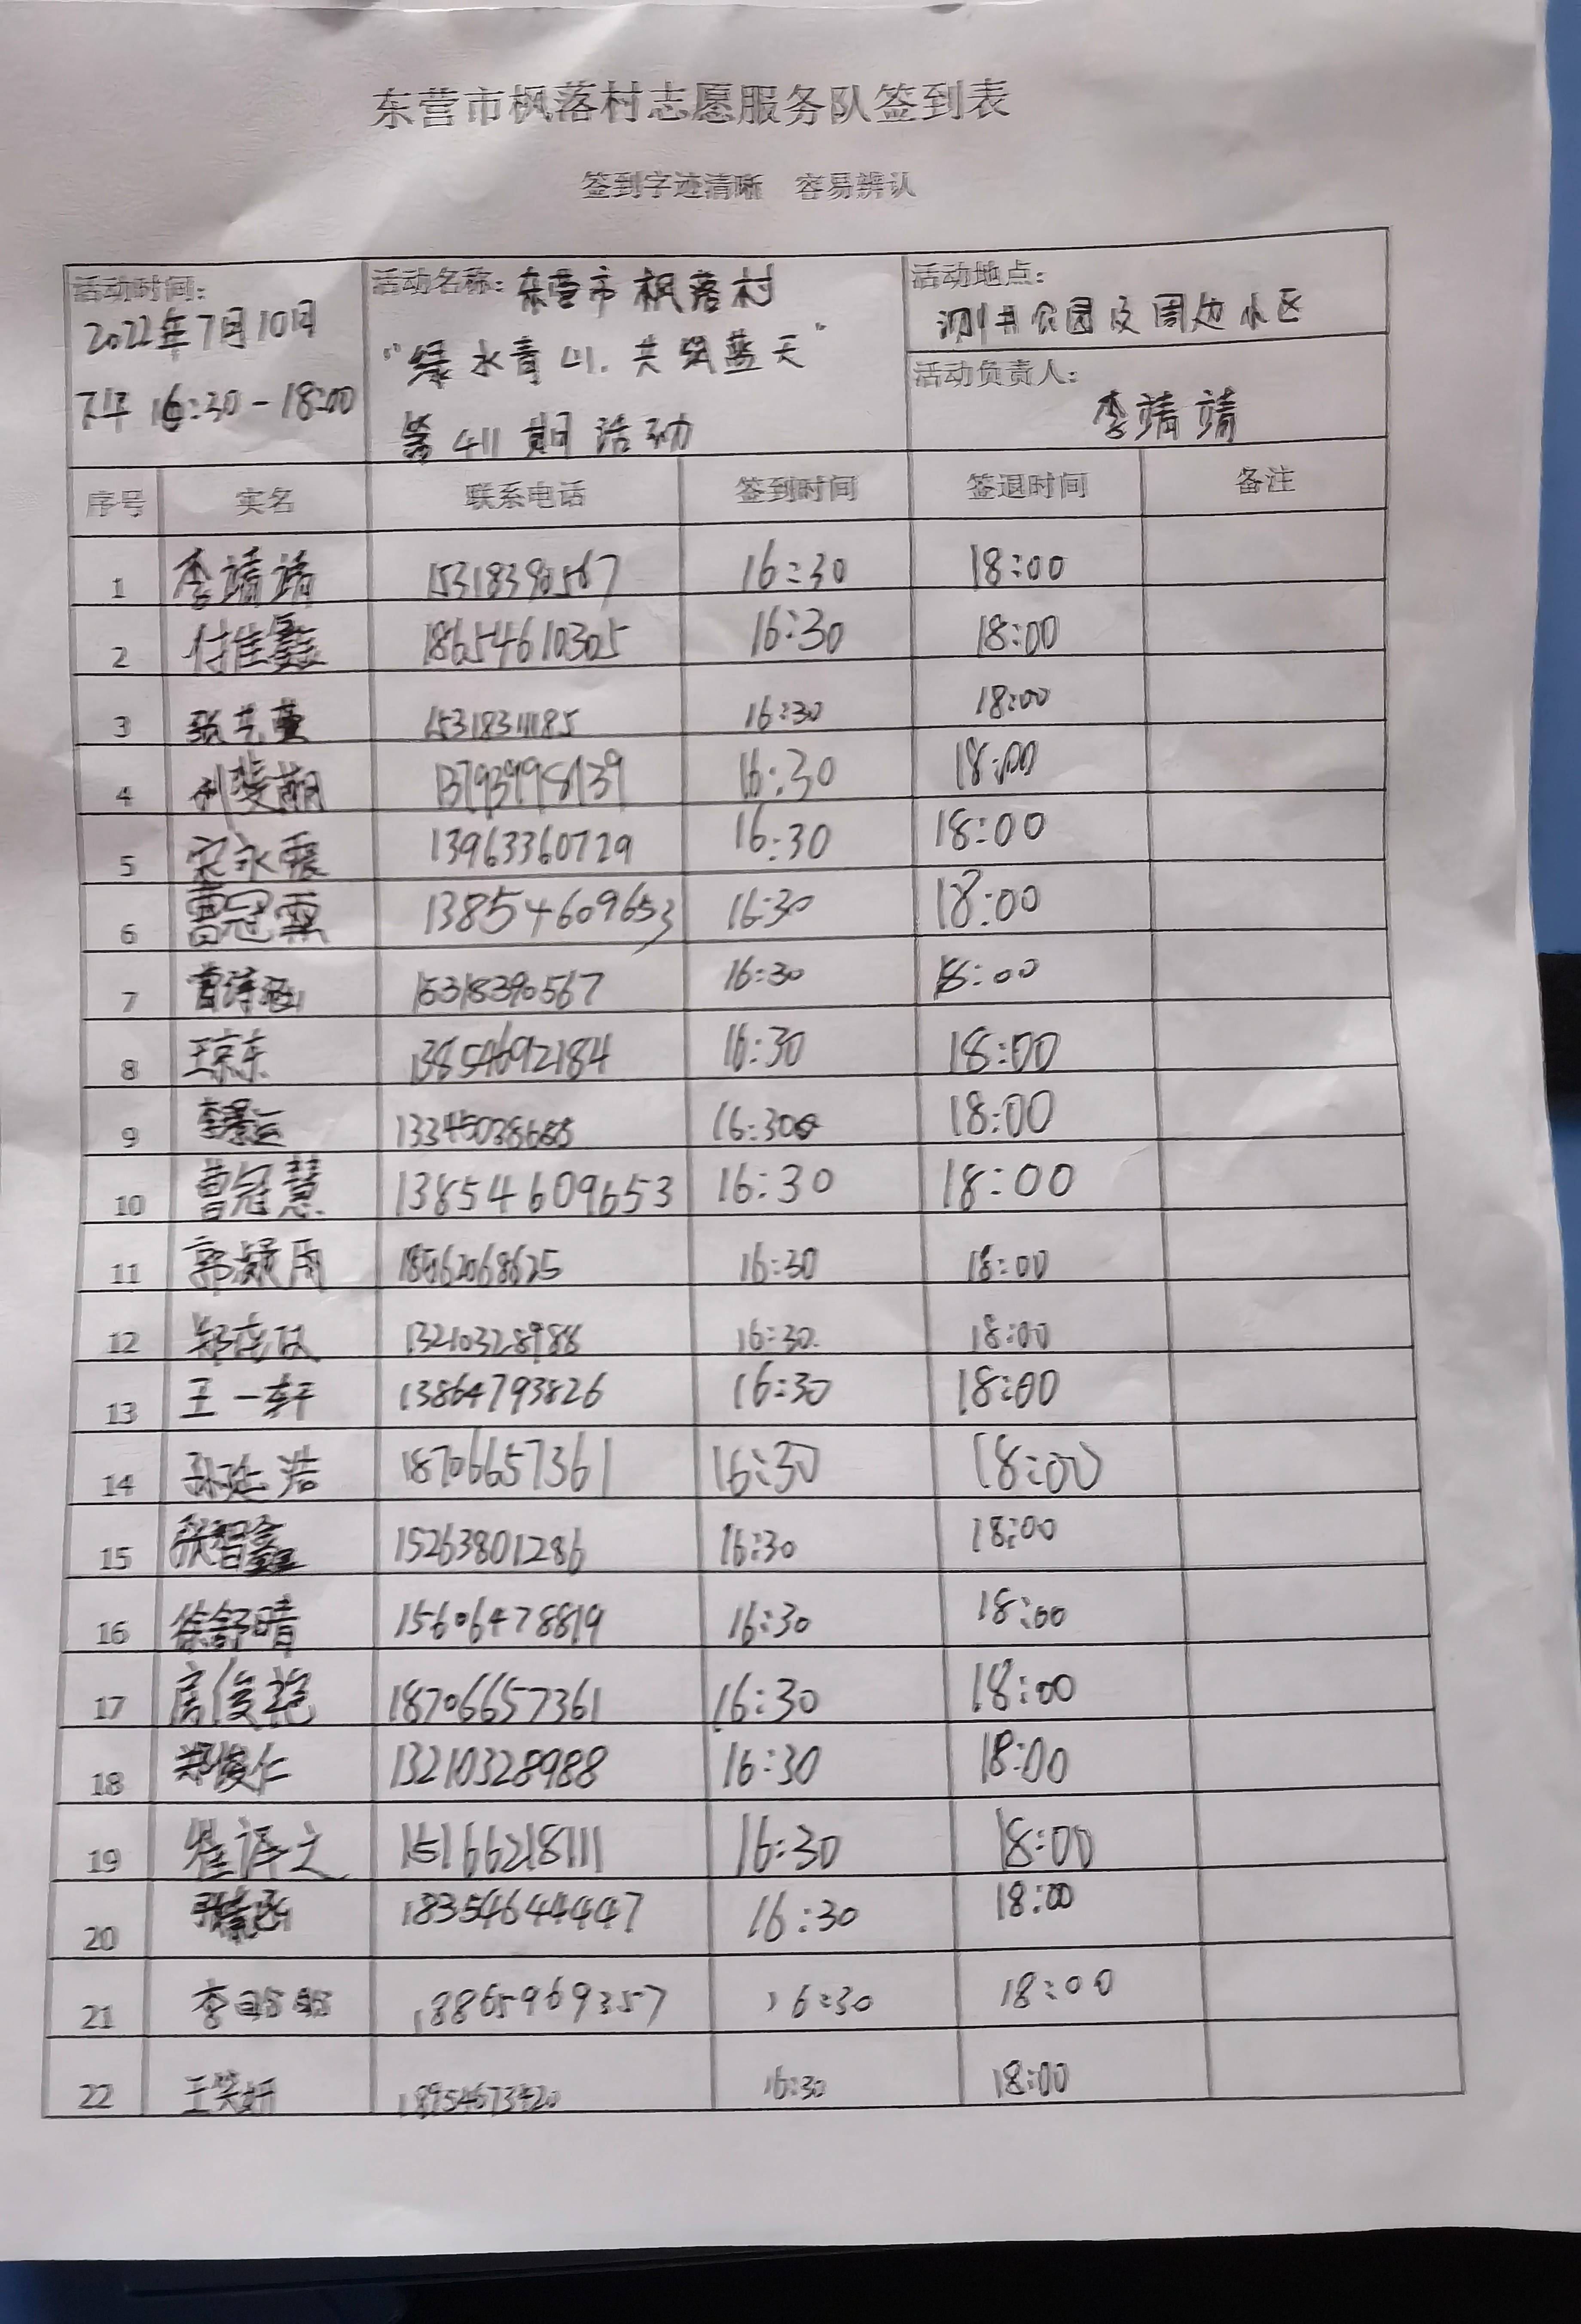 东营市枫落村志愿服务队签到表
签到字迹清晰 容易辨认
活动时间:
2022年7月10日
下午 16:30-18:00
活动名称: 东营市枫落村
“绿水青山.共筑蓝天”
第411期活动
活动地点:
测井公园及周边小区
活动负责人:
李靖靖
序号 实名 联系电话 签到时间 签退时间 备注
1 李靖靖 15318390567 16:30 18:00
2 付佳鑫 18654610305 16:30 18:00
3 张艺萱 15318311185 16:30 18:00
4 13793998139 16:30 18:00
5 宋永震 13963360729 16:30 18:00
6 曹冠霖 13854609653 16:30 18:00
7 曹诗涵 15318390567 16:30 18:00
8 王京东 13854692184 16:30 18:00
9 16:30 18:00
10 曹冠慧 13854609653 16:30 18:00
11 郭凝雨 16:30 18:00
12 13210328988 16:30 18:00
13 王一轩 13864793826 16:30 18:00
14 孙延浩 18706657361 16:30 18:00
15 张智鑫 15263801286 16:30 18:00
16 徐舒晴 15606478819 16:30 18:00
17 房俊 18706657361 16:30 18:00
18 郑俊仁 13210328988 16:30 18:00
19 崔译文 15166218111 16:30 18:00
20 18354644447 16:30 18:00
21 李 18865969357 16:30 18:00
22 王笑妍 16:30 18:00